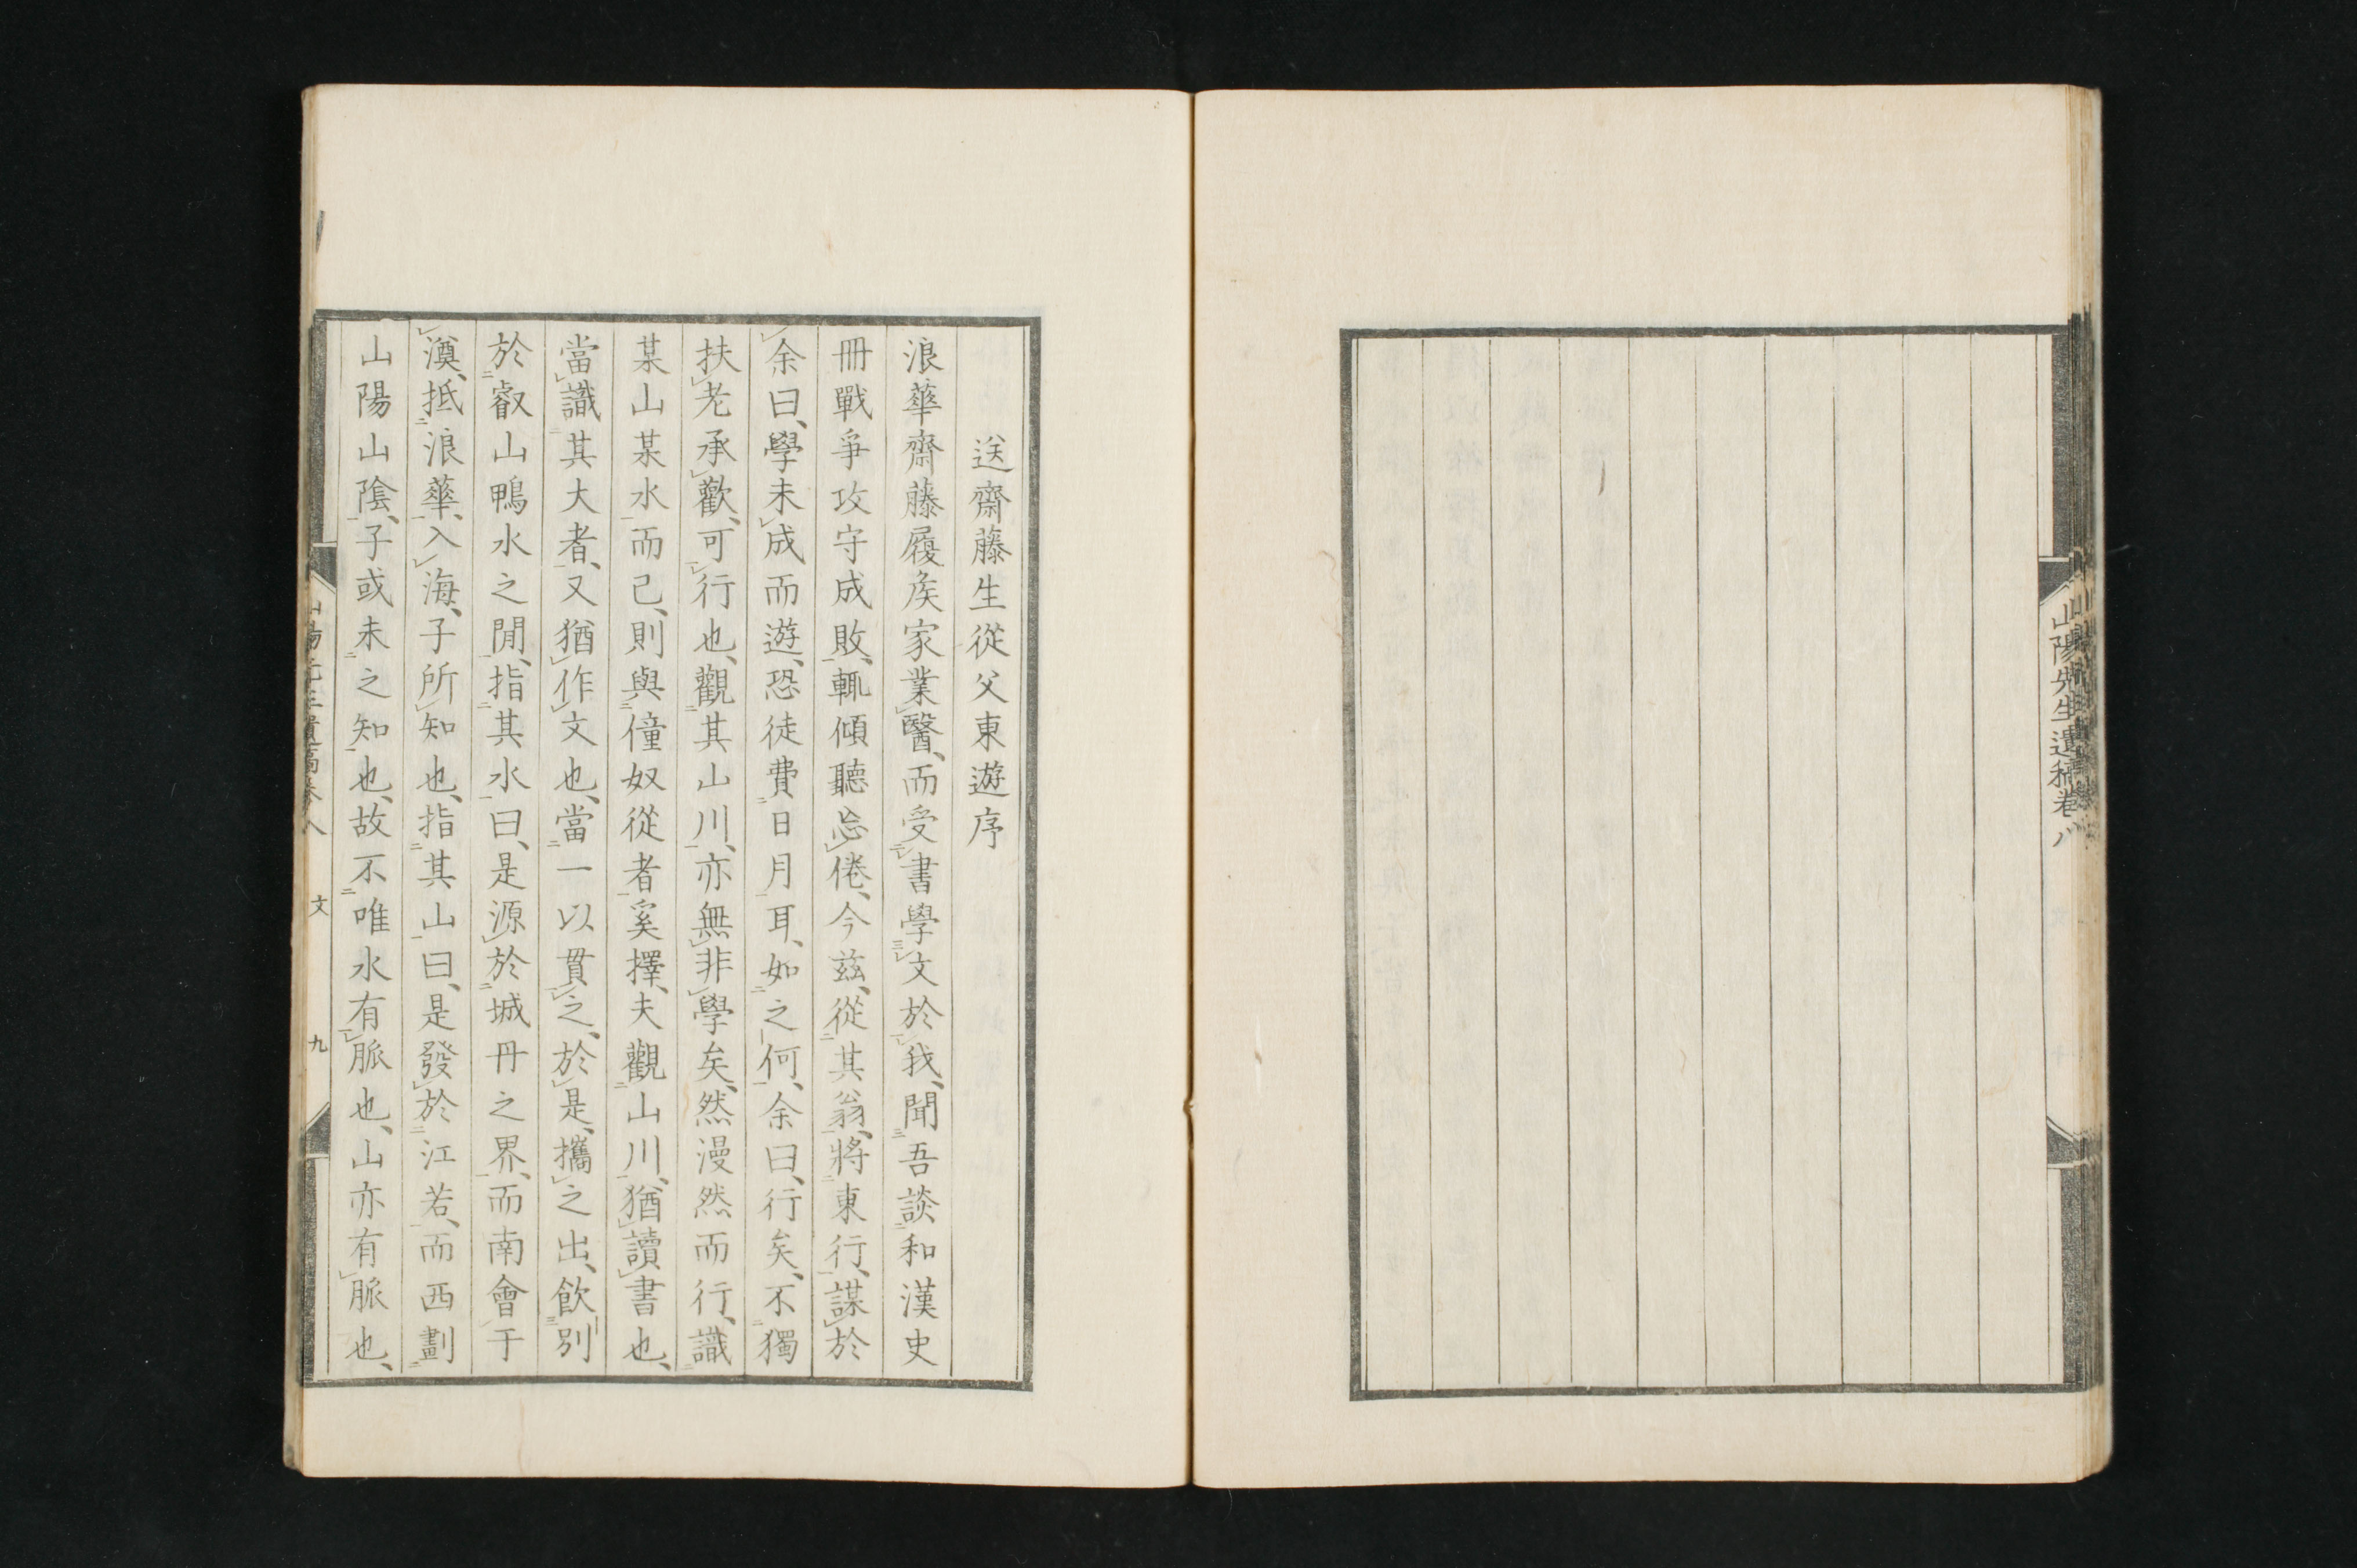 山陽先生遺稿卷八
送齋藤生從父東遊序
浪華齋藤履矦家業醫、而受書學文於我、聞吾談和漢史
冊戰爭攻守成敗、輒傾聽忘倦、今茲、從其翁、將東行、謀於
余曰、學未成而遊、恐徒費日月耳、如之何、余曰、行矣、不獨
扶老承歡、可行也、觀其山川、亦無非學矣、然漫然而行、識
某山某水而已、則與僮奴從者奚擇、夫觀山川、猶讀書也、
當識其大者、又猶作文也、當一以貫之、於是、攜之出、飲別
於叡山鴨水之閒、指其水曰、是源於城丹之界、而南會于
澳、抵浪華、入海、子所知也、指其山曰、是發於江若、而西劃
山陽山陰、子或未之知也、故不唯水有脈也、山亦有脈也、
山陽先生遺稿卷八 文 九